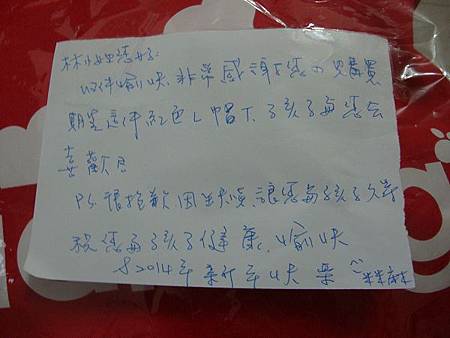 林小姐您好:
收件愉快 非常感謝您的購買
期望這件紅色L帽T.孩子與您會
喜歡
PS.很抱歉因生產讓您與孩子久等
祝您與孩子健康.愉快
& 2014年 新年快樂